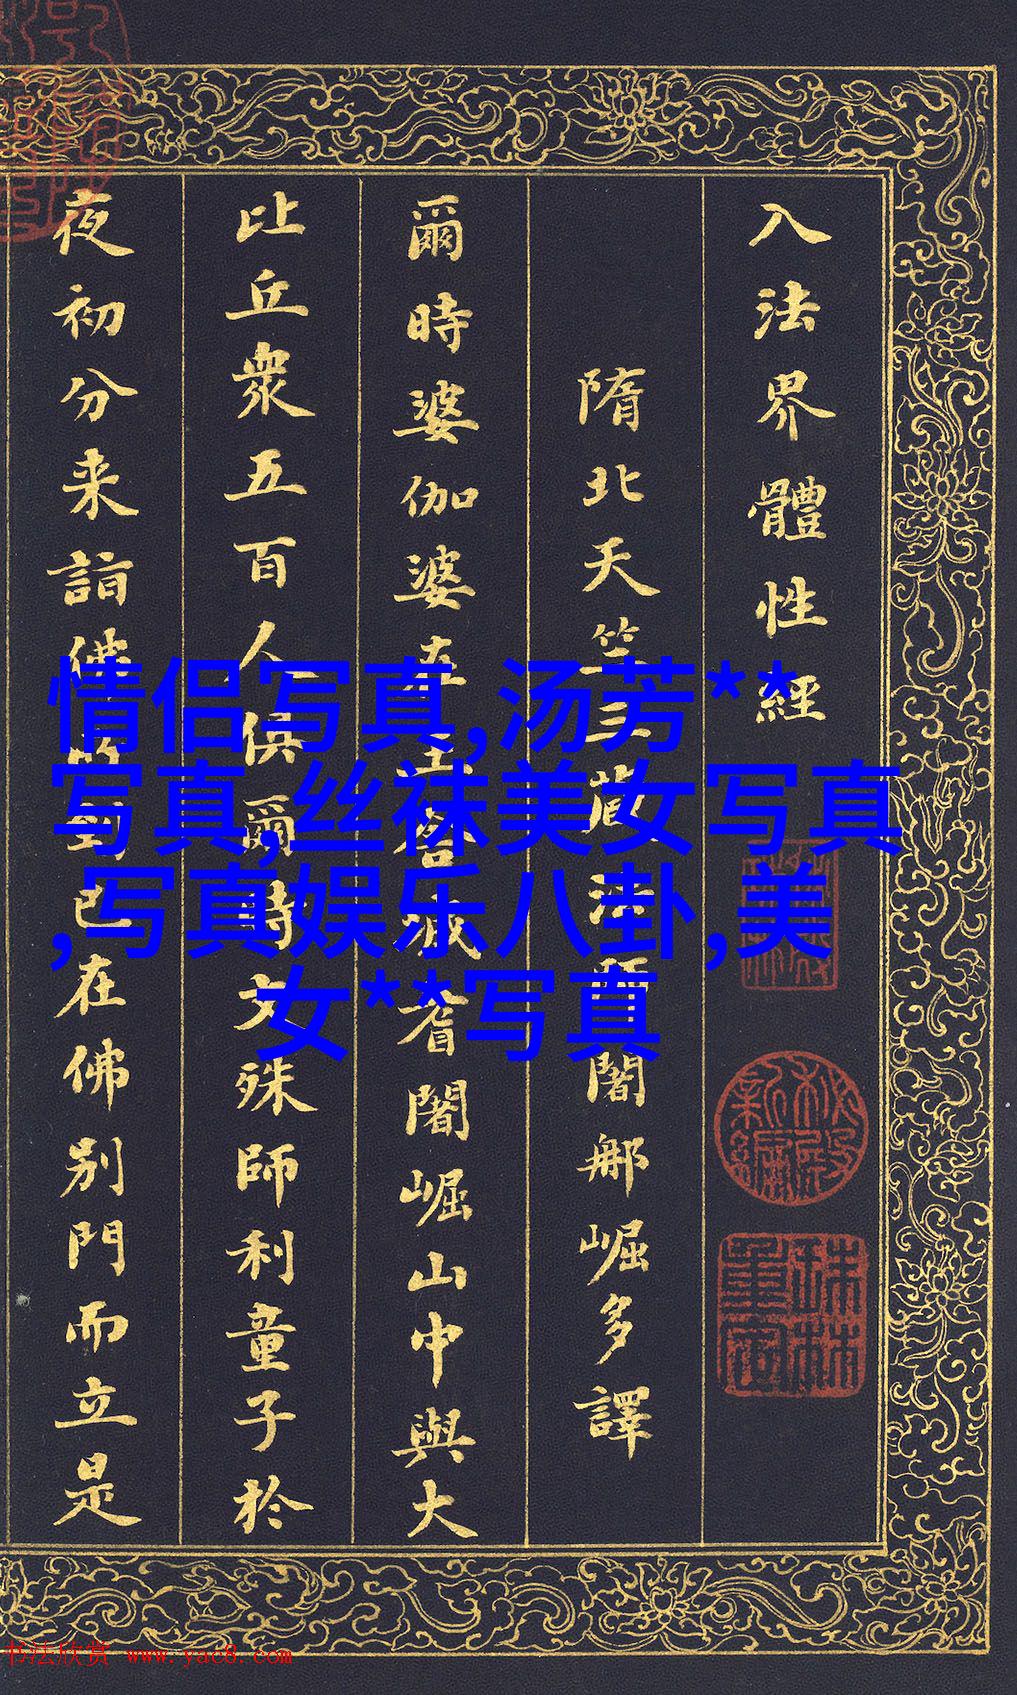 入法界體性經
隋北天竺三藏法師闍那崛多譯
爾時婆伽婆在王舍城耆闍崛山中與大
比丘眾五百人俱爾時文殊師利童子於
夜初分来詣佛所到已在佛別門而立是
情侣写真,汤芳**
写真,丝袜美女写真
,写真娱乐八卦,美
女**写真
书法欣赏 www.yac8.com